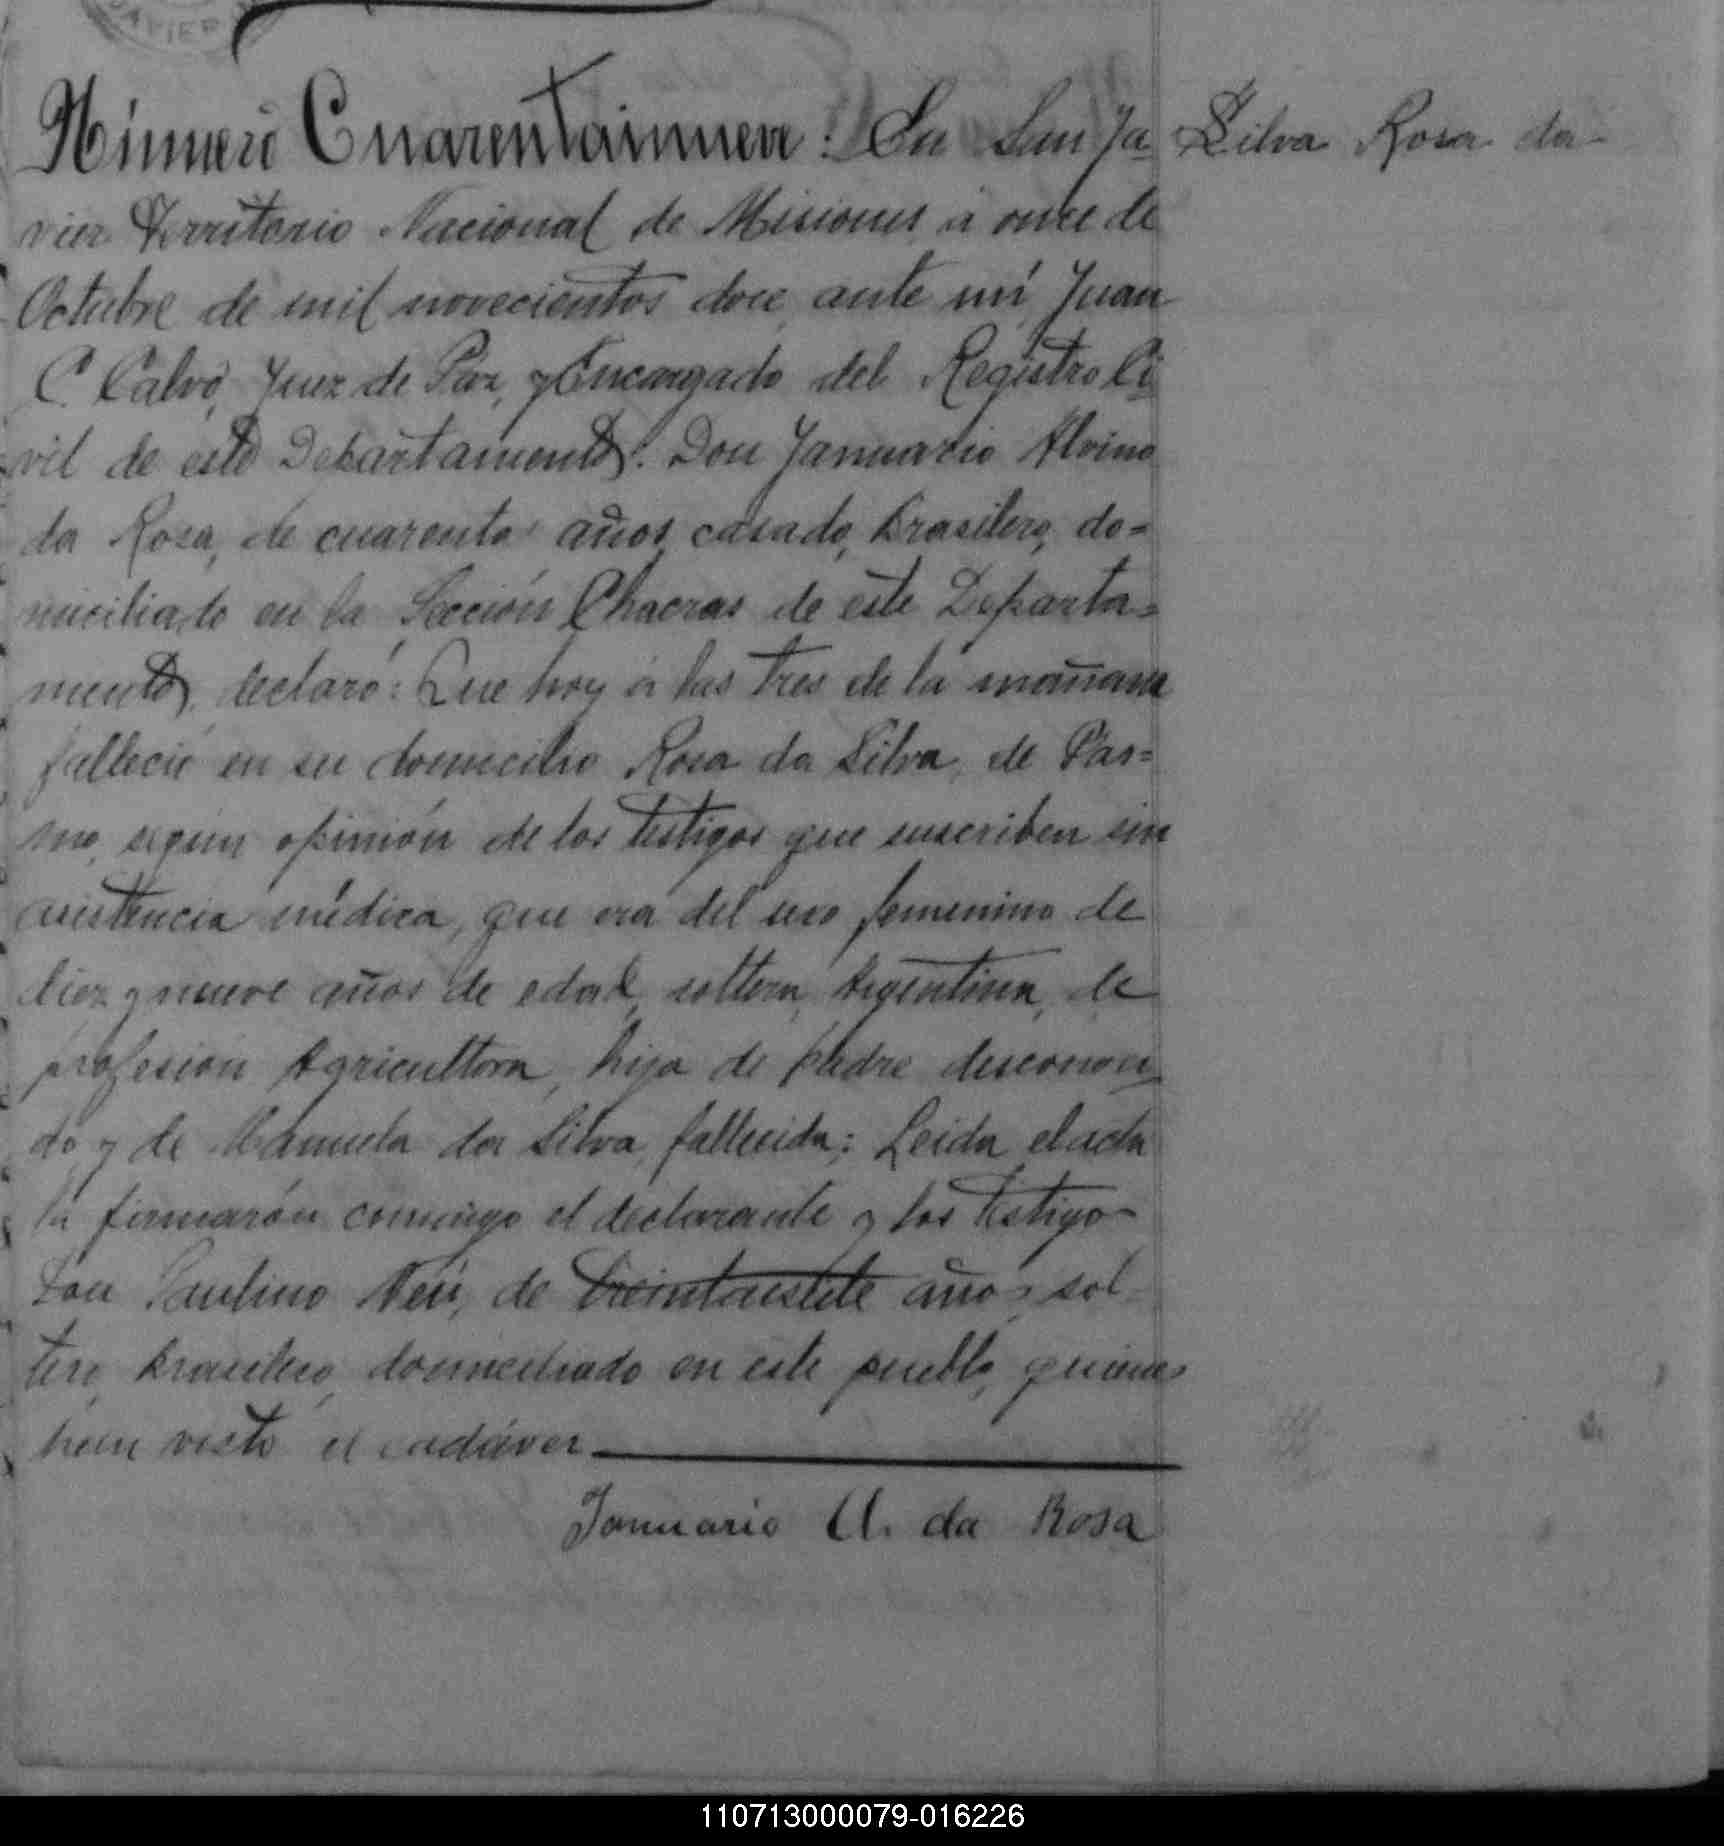 AVIER
Número Cuarentainueve: En San Ja-
Silva Rosa da-
vier Territorio Nacional de Misiones á once de
Octubre de mil novecientos doce, ante mí, Juan
C. Calvo, Juez de Paz, y Encargado del Registro Ci-
vil de este Departamento: Don Januario Alvino
da Rosa, de cuarenta años, casado, brasilero, do=
miciliado en la Sección Chacras de este Departa=
mento, declaró: Que hoy á las tres de la mañana
falleció en su domicilio Rosa da Silva, de Pas=
mo, según opinión de los testigos que suscriben sin
asistencia médica, que era del sexo femenino de
diez y nueve años de edad, soltera, Argentina, de
profesión Agricultora, hija de padre desconoci-
do y de Manuela da Silva, fallecida; Leida el acta
la firmarón conmigo el declarante y los testigos
Don Paulino Neú, de treintaisiete años, sol-
tero, brasilero, domiciliado en este pueblo, quienes
han visto el cadáver
Januario A. da Rosa
110713000079-016226